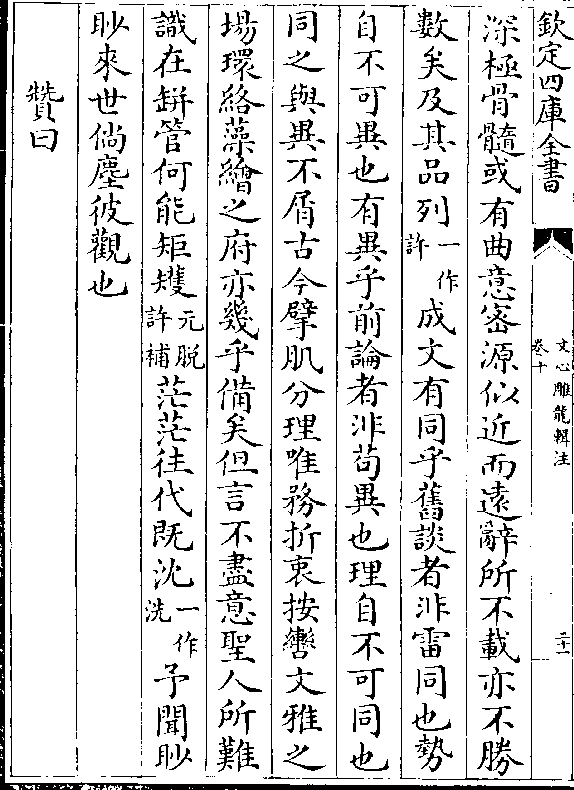 欽定四庫全書
文心雕龍輯注
卷十
二十一
深極骨髓或有曲意宻源似近而遠辭所不載亦不勝
數矣及其品列一作許成文有同乎舊談者非雷同也勢
自不可異也有異乎前論者非苟異也理自不可同也
同之與異不屑古今擘肌分理唯務折衷按轡文雅之
場環絡藻繪之府亦幾乎備矣但言不盡意聖人所難
識在缾管何能矩矱元脱許補茫茫往代既沈一作洗予聞眇
眇來世倘塵彼觀也
贊曰